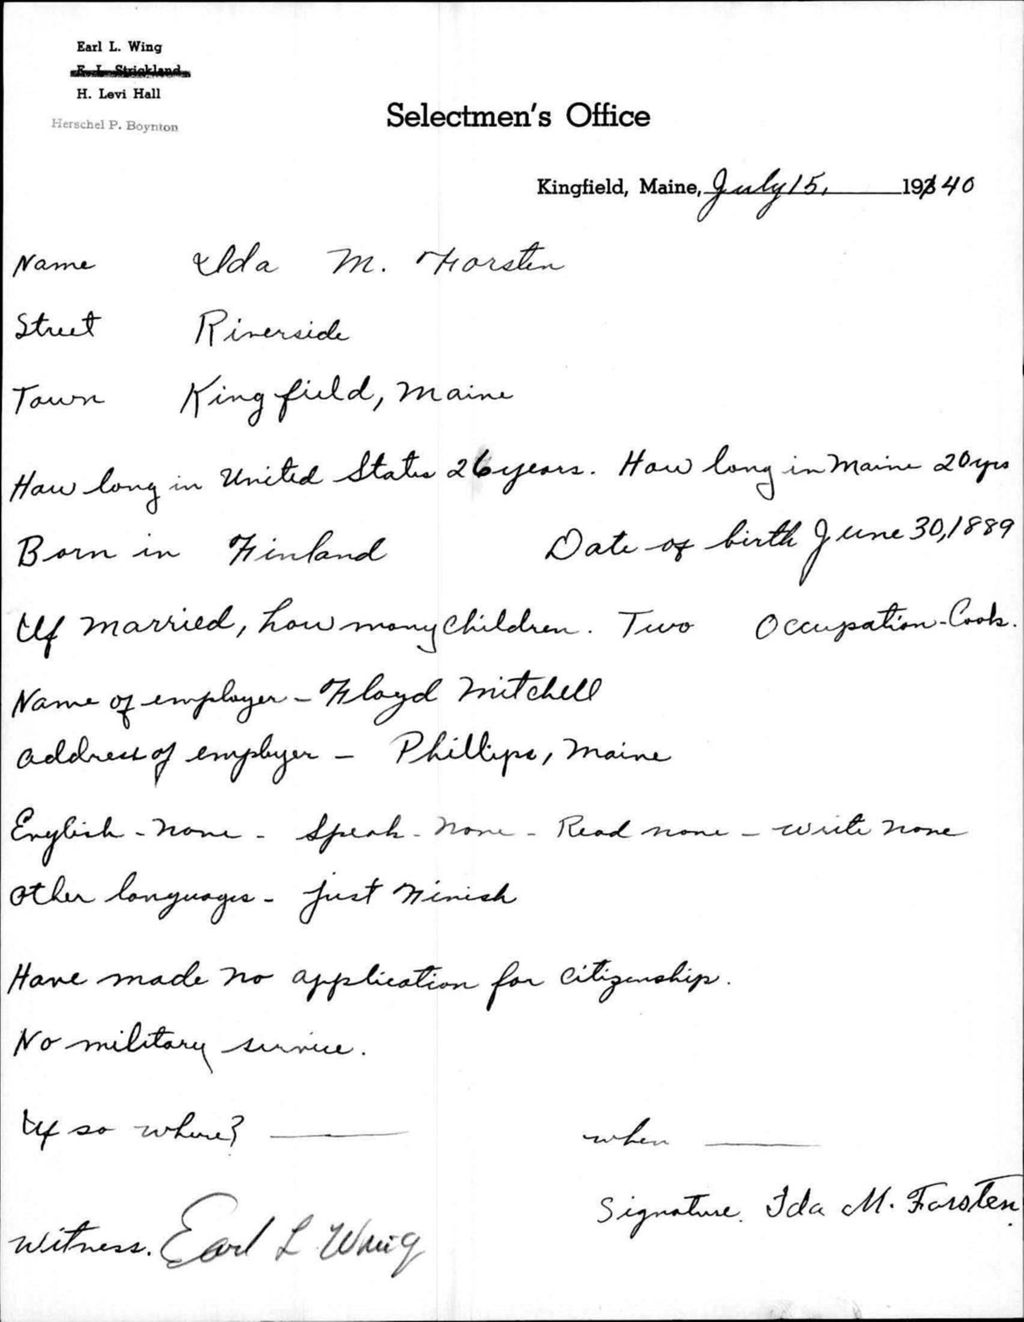 Earl L. Wing
E. L. Strickland
H. Levi Hall
Herschel P. Boynton
Selectmen's Office
Kingfield, Maine, July 15, 1940
Name Ida M. Forsten
Street Riverside
Town Kingfield, Maine
How long in United States 26 years. How long in Maine 20 yrs
Born in Finland Date of birth June 30, 1889
If married, how many children. Two Occupation - Cook.
Name of employer - Floyd Mitchell
address of employer - Phillips, Maine
English - none - Speak - none - Read none - write none
Other languages - just Finish
Have made no application for citizenship.
No military service.
If so where? when
Signature. Ida M. Forsten.
Witness. Earl L Wing